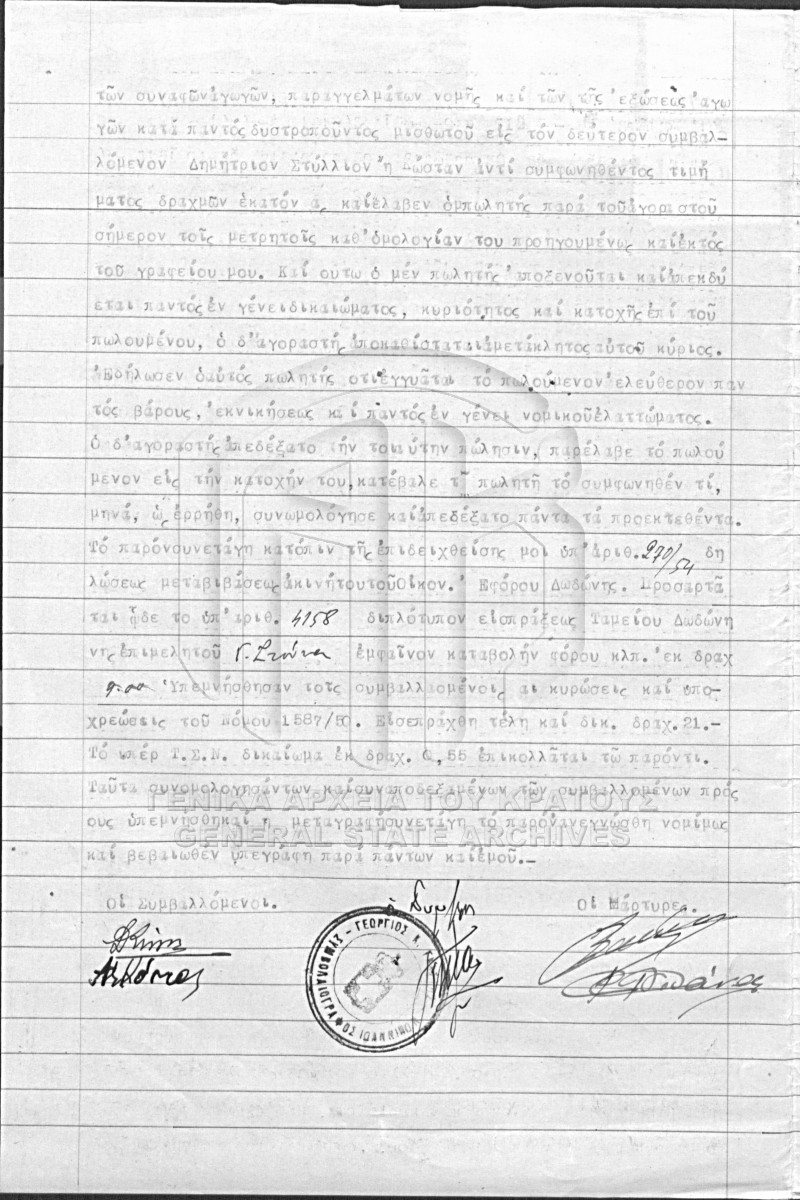 τῶν συναφῶνἀγωγῶν, παραγγελμάτων νομῆς καί τῶν τῆς ἐξώσεως ἀγω
γῶν κατά παντός δυστροποῦντος μισθωτοῦ εἰς τόν δεύτερον συμβαλ-
λόμενον Δημήτριον Στύλλιον ἤ Κώσταν ἀντί συμφωνηθέντος τιμή
ματος δραχμῶν ἑκατόν ἅ καίἔλαβεν ὁπωλητής παρά τοῦἀγοραστοῦ
σήμερον τοῖς μετρητοῖς καθ'ὁμολογίαν του προηγουμένως καίἐκτός
τοῦ γραφείου μου. Καί οὕτω ὁ μέν πωλητής ἀποξενοῦται καίἀπεκδύ
εται παντός ἐν γένειδικαιώματος, κυριότητος καί κατοχῆς ἐπί τοῦ
πωλουμένου, ὁ δ'ἀγοραστής ἀποκαθίσταταιἀμετάκλητος αὐτοῦ κύριος.
Ἐδήλωσεν ὁαὐτός πωλητής ὅτιἐγγυᾶται τό πωλούμενον ἐλεύθερον παν
τός βάρους, ἐκνικήσεως καί παντός ἐν γένει νομικοῦἐλαττώματος.
Ὁ δ'ἀγοραστής ἀπεδέξατο τήν τοιαύτην πώλησιν, παρέλαβε τό πωλού
μενον εἰς τήν κατοχήν του,κατέβαλε τῷ πωλητῆ τό συμφωνηθέν τί,
μημά, ὡς ἐρρήθη, συνωμολόγησε καίἀπεδέξατο πάντα τά προεκτεθέντα.
Τό παρόνσυνετάγη κατόπιν τῆς ἐπιδειχθείσης μοι ὑπ'ἀριθ. 270/54 δη
λώσεως μεταβιβάσεως ἀκινήτουτοῦΟἰκον. Ἐφόρου Δωδώνης. Προσαρτᾶ
ται ᾧδε τό ὑπ'ἀριθ. 4158 διπλότυπον εἰσπράξεως Ταμείου Δωδώνη
νης ἐπιμελητοῦ Γ. ἐμφαῖνον καταβολήν φόρου κλπ. ἐκ δραχ
Ὑπεμνήσθησαν τοῖς συμβαλλομένοις αἱ κυρώσεις καί ὑπο-
χρεώσεις τοῦ Νόμου 1587/50. Εἰσεπράχθη τέλη καί δικ. δραχ.21.-
Τό ὑπέρ Τ.Σ.Ν. δικαίωμα ἐκ δραχ. 0,55 ἐπικολλᾶται τῷ παρόντι.
Ταῦτα συνομολογησάντων καίσυναποδεξαμένων τῶν συμβαλλομένων πρός
ΓΕΝΙΚΑ ΑΡΧΕΙΑ ΤΟΥ ΚΡΑΤΟΥΣ
οὕς ὑπεμνήσθηκαί ἡ μεταγραφήσυνετάγη τό παρόνἀνεγνώσθη νομίμως
GENERAL STATE ARCHIVES
καί βεβαιωθέν ὑπεγράφη παρά πάντων καίἐμοῦ.-
Οἱ Συμβαλλόμενοι. Ὁ Συμ/φος Οἱ Μάρτυρες.
ΓΕΩΡΓΙΟΣ Κ.
ΙΩΑΝΝΙΝΩΝ